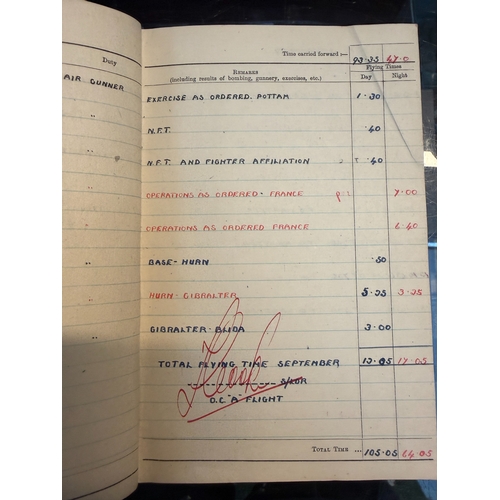 Time carried forward :— 93.35 47.0
Duty
REMARKS
(including results of bombing, gunnery, exercises, etc.)
Flying Times
Day Night
AIR GUNNER
EXERCISE AS ORDERED. POTTAM 1.30
" N.F.T. .40
" N.F.T. AND FIGHTER AFFILIATION .40
" OPERATIONS AS ORDERED. FRANCE 7.00
" OPERATIONS AS ORDERED FRANCE 6.40
" BASE-HURN .50
" HURN-GIBRALTER 5.25 3.25
" GIBRALTER-BLIDA 3.00
TOTAL FLYING TIME SEPTEMBER 12.05 17.05
S/LDR
O.C "A" FLIGHT
TOTAL TIME ... 105.05 64.05